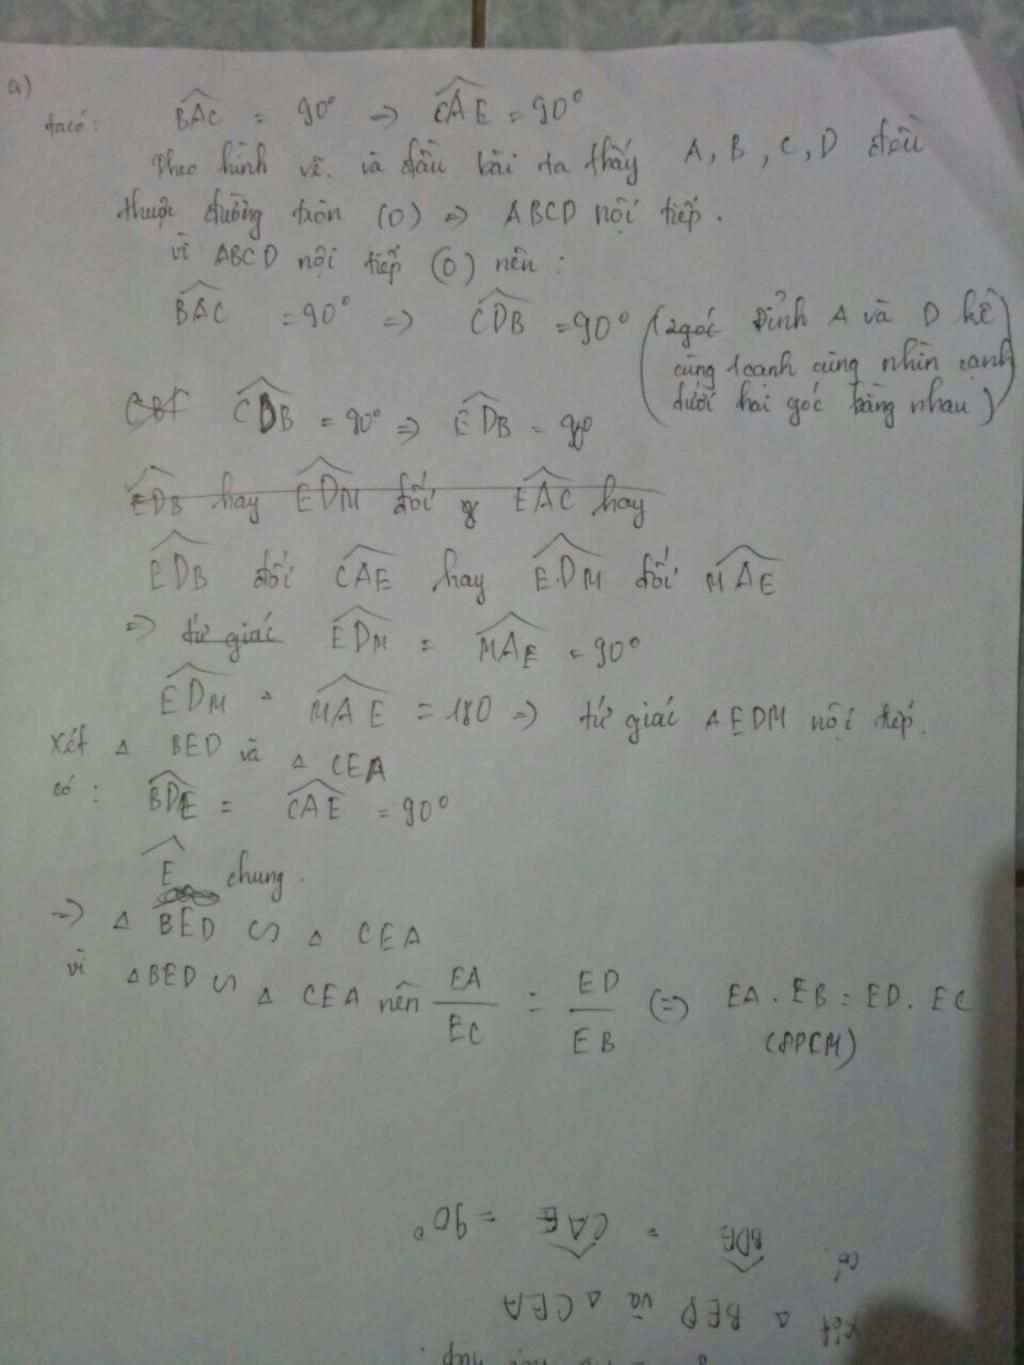 a)
ta có: BAC = 90° => CAE = 90°
Theo hình vẽ. và đầu bài ta thấy A, B, C, D đều
thuộc đường tròn (O) => ABCD nội tiếp.
vì ABCD nội tiếp (O) nên:
BAC = 90° => CDB = 90° (2 góc đỉnh A và D kề
cùng 1 cạnh cùng nhìn cạnh
dưới hai góc bằng nhau)
CDB = 90° => EDB = 90
EDB hay EDM đối EAC hay
EDB đối CAE hay EDM đối MAE
=> tứ giác EDM = MAE = 90°
EDM + MAE = 180 => tứ giác AEDM nội tiếp.
Xét △ BED và △ CEA
có: BDE = CAE = 90°
E chung.
=> △ BED ∽ △ CEA
vì △BED ∽ △ CEA nên EA/EC = ED/EB (=) EA. EB = ED. EC
(ĐPCM)
có: BDE = CAE = 90°
Xét △ BED và △ CEA